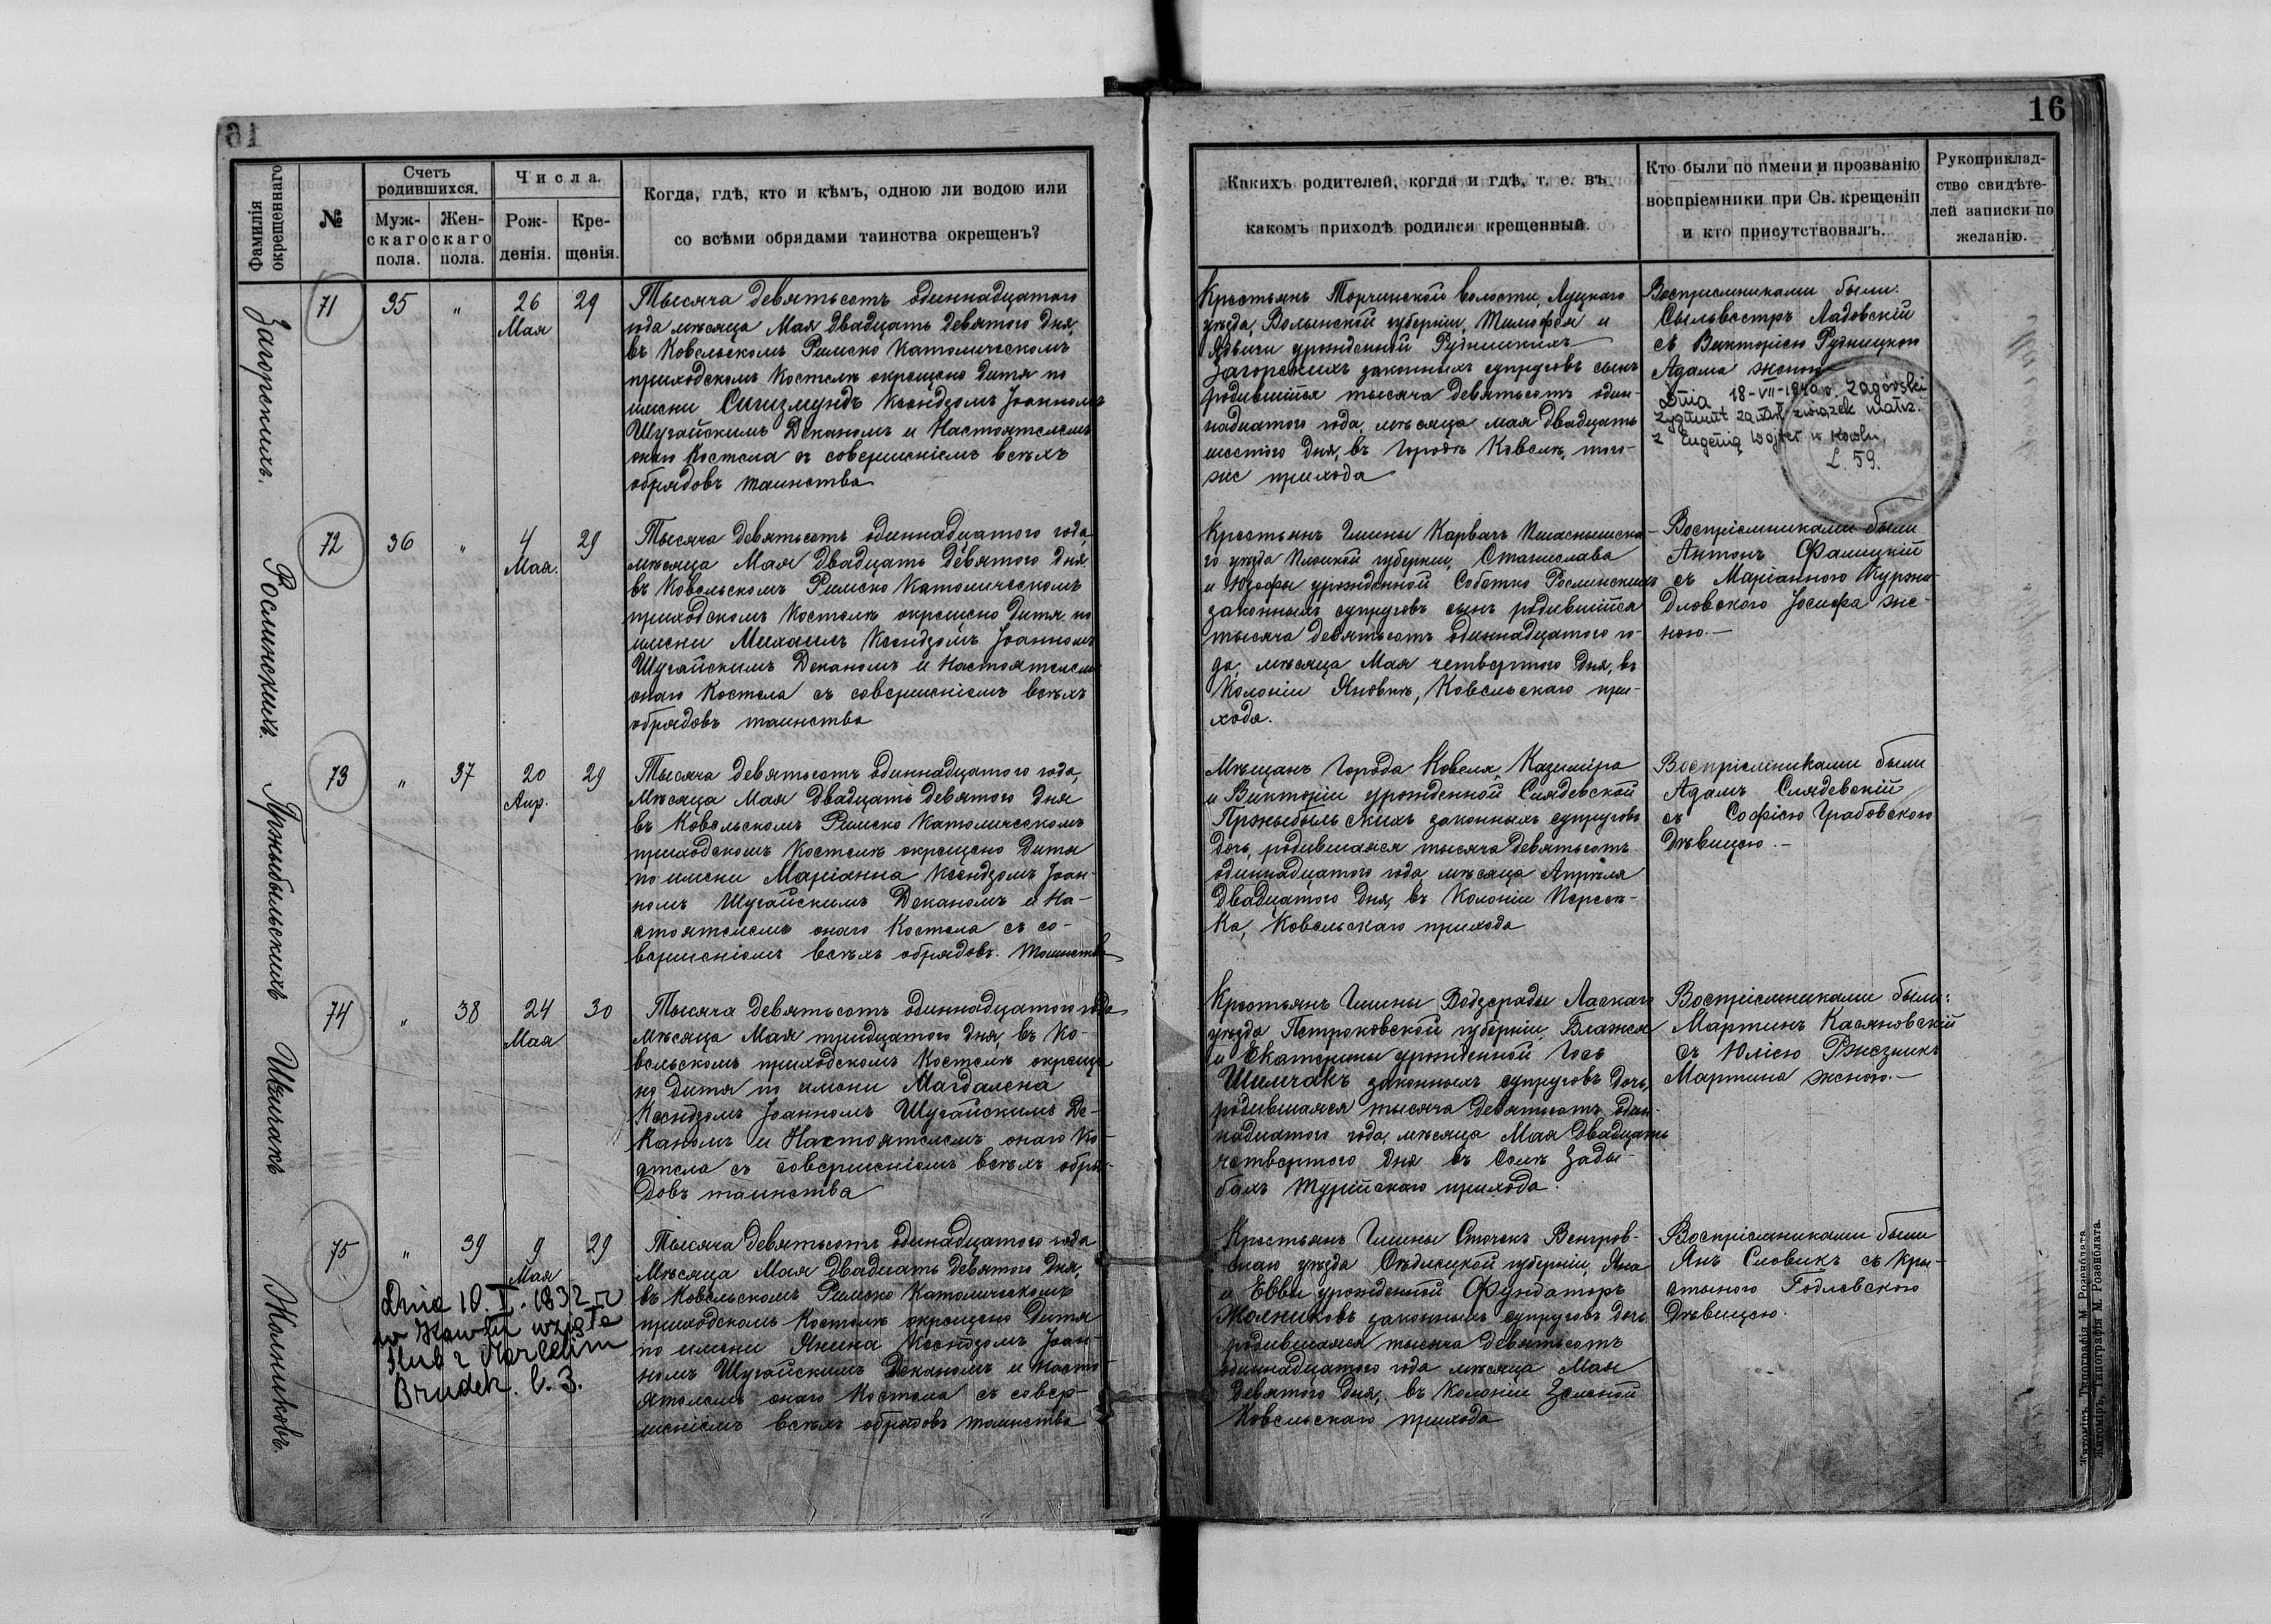 16
Фамилія окрещеннаго
№
Счетъ родившихся.
Муж-
скаго
пола.
Жен-
скаго
пола.
Числа.
Рож-
денія.
Кре-
щенія.
Когда, гдѣ, кто и кѣмъ, одною ли водою или
со всѣми обрядами таинства окрещенъ?
Какихъ родителей, когда и гдѣ, т. е. въ
какомъ приходѣ родился крещенный.
Кто были по имени и прозванію
воспріемники при Св. крещеніи
и кто присутствовалъ.
Рукоприклад-
ство свидѣте-
лей записки по
желанію.
Загорскихъ.
71
35
"
26
Мая
29
Тысяча девятьсотъ одиннадцатаго
года мѣсяца Мая двадцать девятого дня,
въ Ковельскомъ Римско Католическомъ
приходскомъ Костелѣ окрещено дитя по
имени Сигизмундъ Ксендзомъ Іоанномъ
Шугайскимъ Деканомъ и Настоятелемъ
онаго Костела съ совершеніемъ всѣхъ
обрядовъ таинства
Крестьянъ Торчинской волости, Луцкаго
уѣзда, Волынской губерніи, Тимофея и
Ядвиги урожденной Рудницкихъ
Загорскихъ законныхъ супруговъ сынъ
родившійся тысяча девятьсотъ один-
надцатого года, мѣсяца мая двадцать
шестого дня, въ городѣ Ковелѣ, того-
же прихода
Воспріемниками были:
Сыльвестръ Ладовскій
съ Викторіею Рудницкою
Адама женою
dnia 18-VII-1940 r. Zagórski
Zygmunt zawarł związek małż.
z Eugenią Wójtel w Kowlu.
L. 59.
Рослинскихъ.
72
36
"
4
Мая.
29
Тысяча девятьсотъ одиннадцатого года
мѣсяца Мая двадцать девятого дня
въ Ковельскомъ Римско Католическомъ
приходскомъ Костелѣ окрещено дитя по
имени Михаилъ Ксендзомъ Іоанномъ
Шугайскимъ Деканомъ и Настоятелемъ
онаго Костела съ совершеніемъ всѣхъ
обрядовъ таинства
Крестьянъ Гмины Карвачъ Пшаснышска-
го уѣзда Плоцкой губерніи, Станислава
и Юзефы урожденной Соботко Рослинскихъ
законныхъ супруговъ сынъ родившійся
тысяча девятьсотъ одиннадцатого го-
да, мѣсяца Мая четвертого дня, въ
Колоніи Яновкѣ, Ковельскаго при-
хода.
Воспріемниками были
Антонъ Фалицкій
съ Маріанною
Іосифа же-
ною.-
Пржыбыльскихъ
73
"
37
20
Апр.
29
Тысяча девятьсотъ одиннадцатого года,
Мѣсяца Мая двадцать девятого дня
въ Ковельскомъ Римско Католическомъ
приходскомъ Костелѣ окрещено дитя
по имени Маріанна Ксендзомъ Іоан-
номъ Шугайскимъ Деканомъ и На-
стоятелемъ онаго Костела съ со-
вершеніемъ всѣхъ обрядовъ таинства
Мѣщанъ города Ковеля, Казиміра
и Викторіи урожденной Сляdевской
Пржыбыльскихъ законныхъ супруговъ
дочь, родившаяся тысяча девятьсотъ
одиннадцатого года мѣсяца Апрѣля
двадцатого дня, въ Колоніи Персп-
ка, Ковельскаго прихода
Воспріемниками были
Адамъ Слядевскій
съ Софіею Грабовскою
Дѣвицею.-
Шимчакъ
74
"
38
24
Мая
30
Тысяча девятьсотъ одиннадцатого года
мѣсяца Мая тридцатого дня, въ Ко-
вельскомъ приходскомъ Костелѣ окреще-
но дитя по имени Магдалена
Ксендзомъ Іоанномъ Шугайскимъ Де-
каномъ и Настоятелемъ онаго Ко-
стела съ совершеніемъ всѣхъ обря-
довъ таинства
Крестьянъ Гмины Водзерады Ласкаго
уѣзда Петроковской губерніи, Блажея
и Екатерины урожденной Гось
Шимчакъ законныхъ супруговъ дочь,
родившаяся тысяча девятьсотъ один-
надцатого года, мѣсяца Мая двадцать
четвертого дня въ Селѣ Зады-
бахъ Турійскаго прихода.
Воспріемниками были:
Мартинъ Касяновскій
съ Юліею Ржезникъ
Мартина женою.-
Жолниковъ.
75
"
39
9
Мая
29
Dnia 10. I. 1832 r
w Kowlu wzięła
ślub z Marcelim
Brudek. l. 3.
Тысяча девятьсотъ одинадцатого года
Мѣсяца Мая двадцать девятого дня,
въ Ковельскомъ Римско Католическомъ
приходскомъ Костелѣ окрещено дитя
по имени Янина Ксендзомъ Іоан-
номъ Шугайскимъ Деканомъ и Насто-
ятелемъ онаго Костела съ совер-
шеніемъ всѣхъ обрядовъ таинства
Крестьянъ Гмины Сточекъ Венгров-
скаго уѣзда Сѣдлецкой губерніи, Яна
и Еввы урожденной Фундаторъ
Жолниковъ законныхъ супруговъ дочь
родившаяся тысяча девятьсотъ
одиннадцатого года мѣсяца Мая
девятого дня, въ Колоніи Зеленой
Ковельскаго прихода
Воспріемниками были
Янъ Словикъ съ Кры-
стыною Годлевскою
Дѣвицею.
Житоміръ, Типографія М. Розенблата.
Житоміръ, Типографія М. Розенблата.